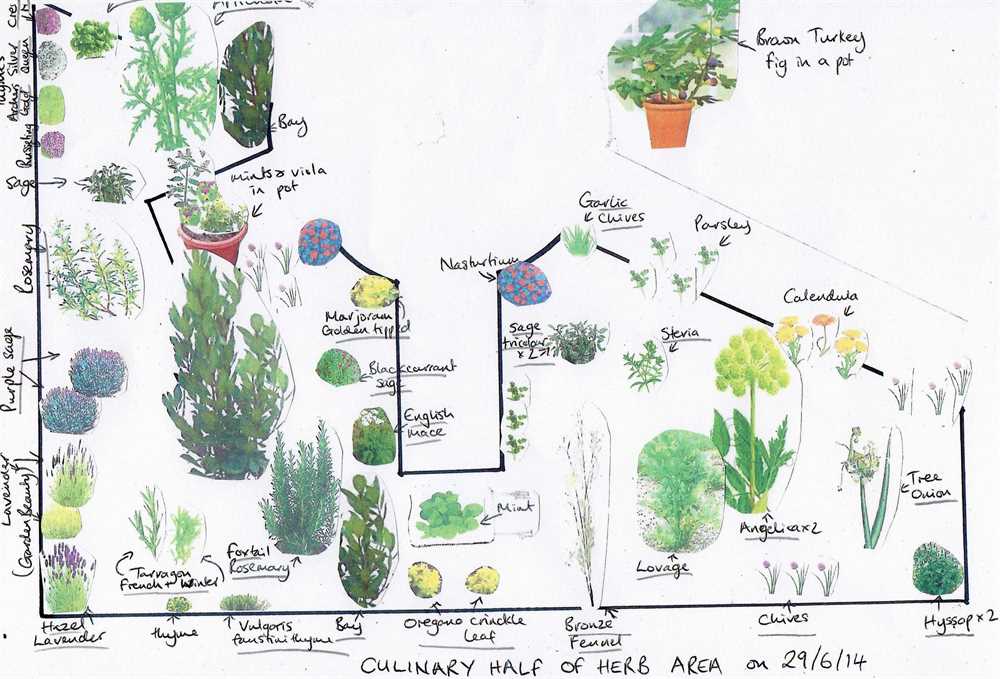 Artichoke
Brown Turkey
fig in a pot
Bay
Thymes
Archers Gold
Silver Queen
Russetting
Sage
Mints & viola
in pot
Garlic
Chives
Parsley
Nasturtium
Rosemary
Marjoram
Golden tipped
Calendula
sage
tricolour
x 2
Stevia
Purple sage
Blackcurrant
sage
English
mace
Lavender
(Garden Beauty)
Mint
Tree
Onion
Angelica x 2
Tarragon
French + Winter
Foxtail
Rosemary
Lovage
Hazel
Lavender
thyme
Vulgaris
faustini thyme
Bay
Oregano crinckle
Leaf
Bronze
Fennel
Chives
Hyssop x 2
CULINARY HALF OF HERB AREA on 29/6/14